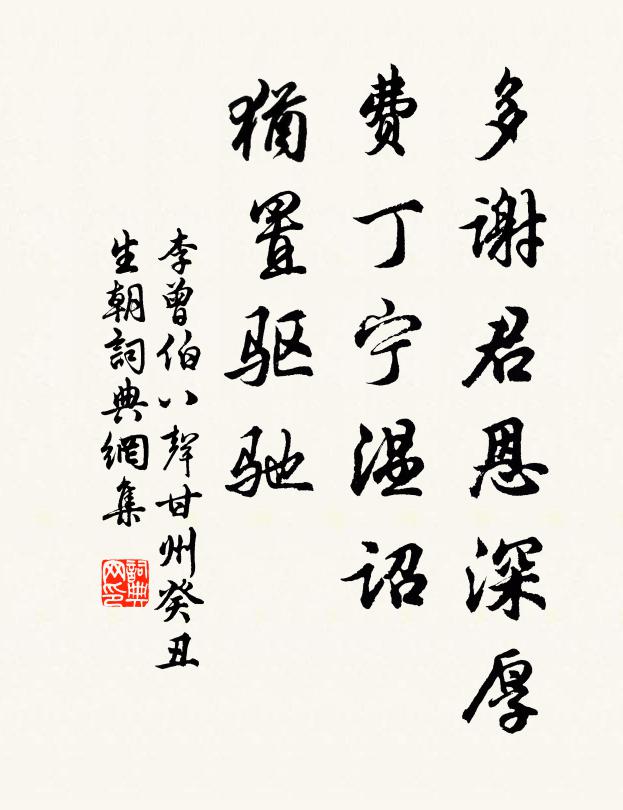 多谢君恩深厚
费丁宁温诏
犹置驱驰
李曾伯八聲甘州癸丑
生朝詞典網集
詞典网印